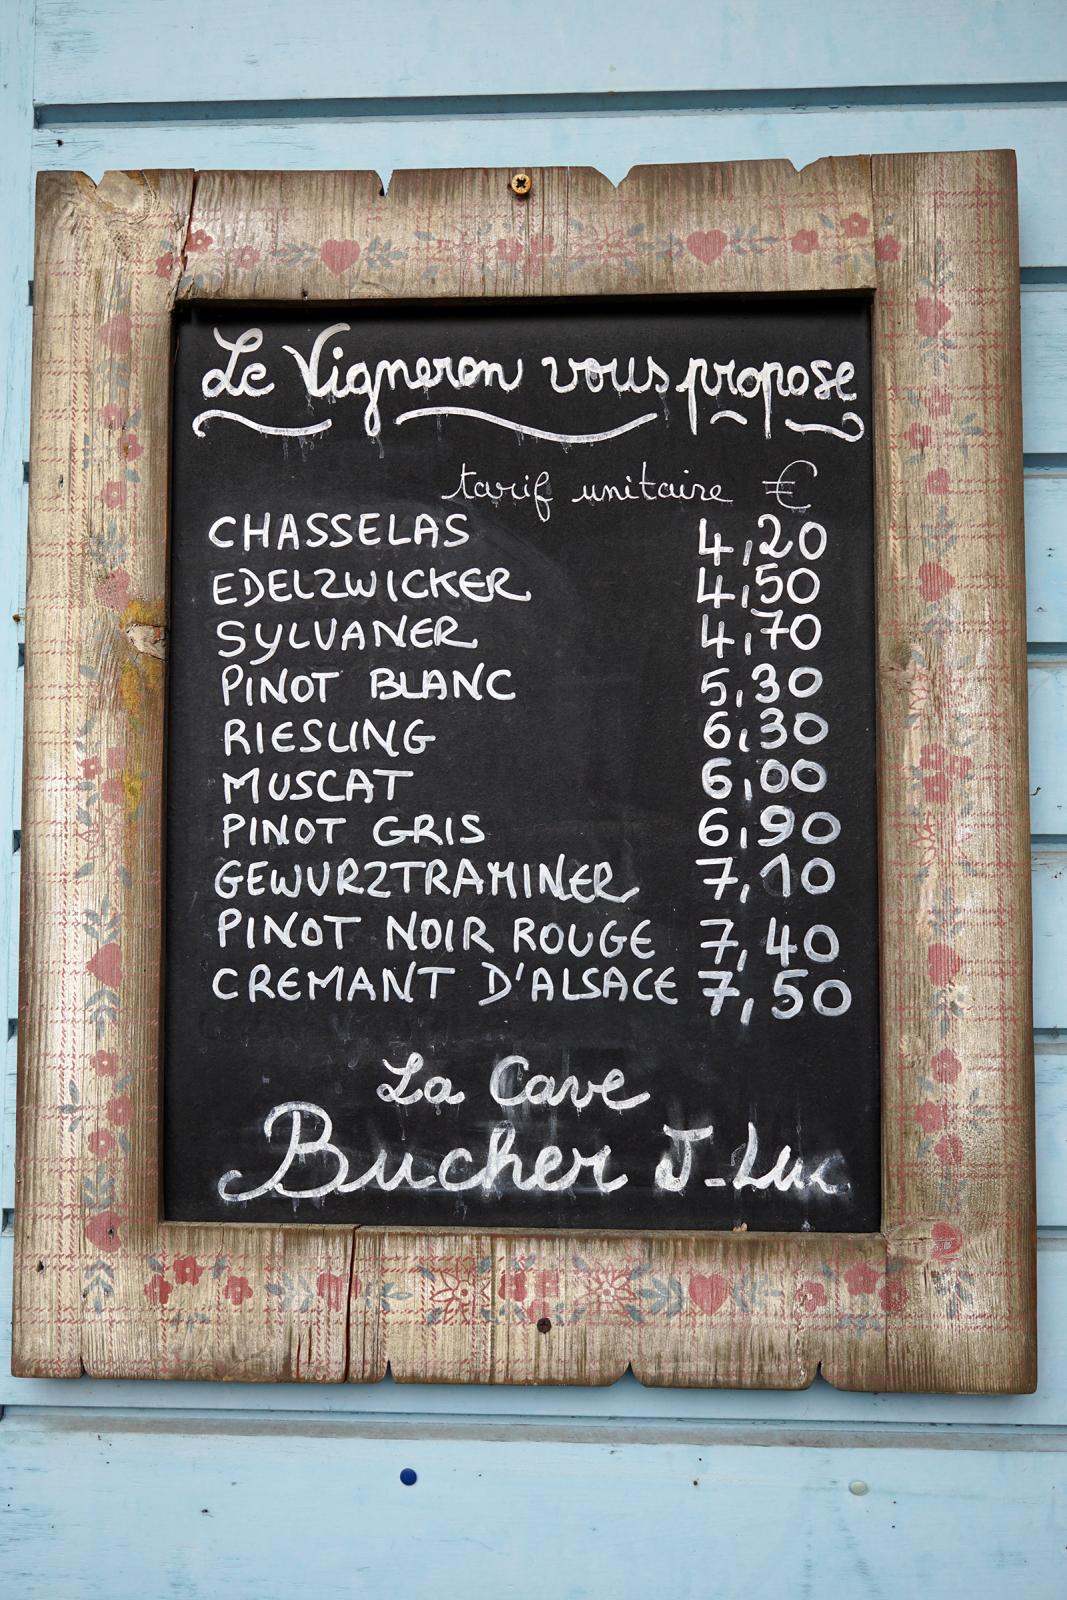 Le Vigneron vous propose
tarif unitaire €
CHASSELAS 4,20
EDELZWICKER 4,50
SYLVANER 4,70
PINOT BLANC 5,30
RIESLING 6,30
MUSCAT 6,00
PINOT GRIS 6,90
GEWURZTRAMINER 7,10
PINOT NOIR ROUGE 7,40
CREMANT D'ALSACE 7,50
La Cave
Bucher J-Luc